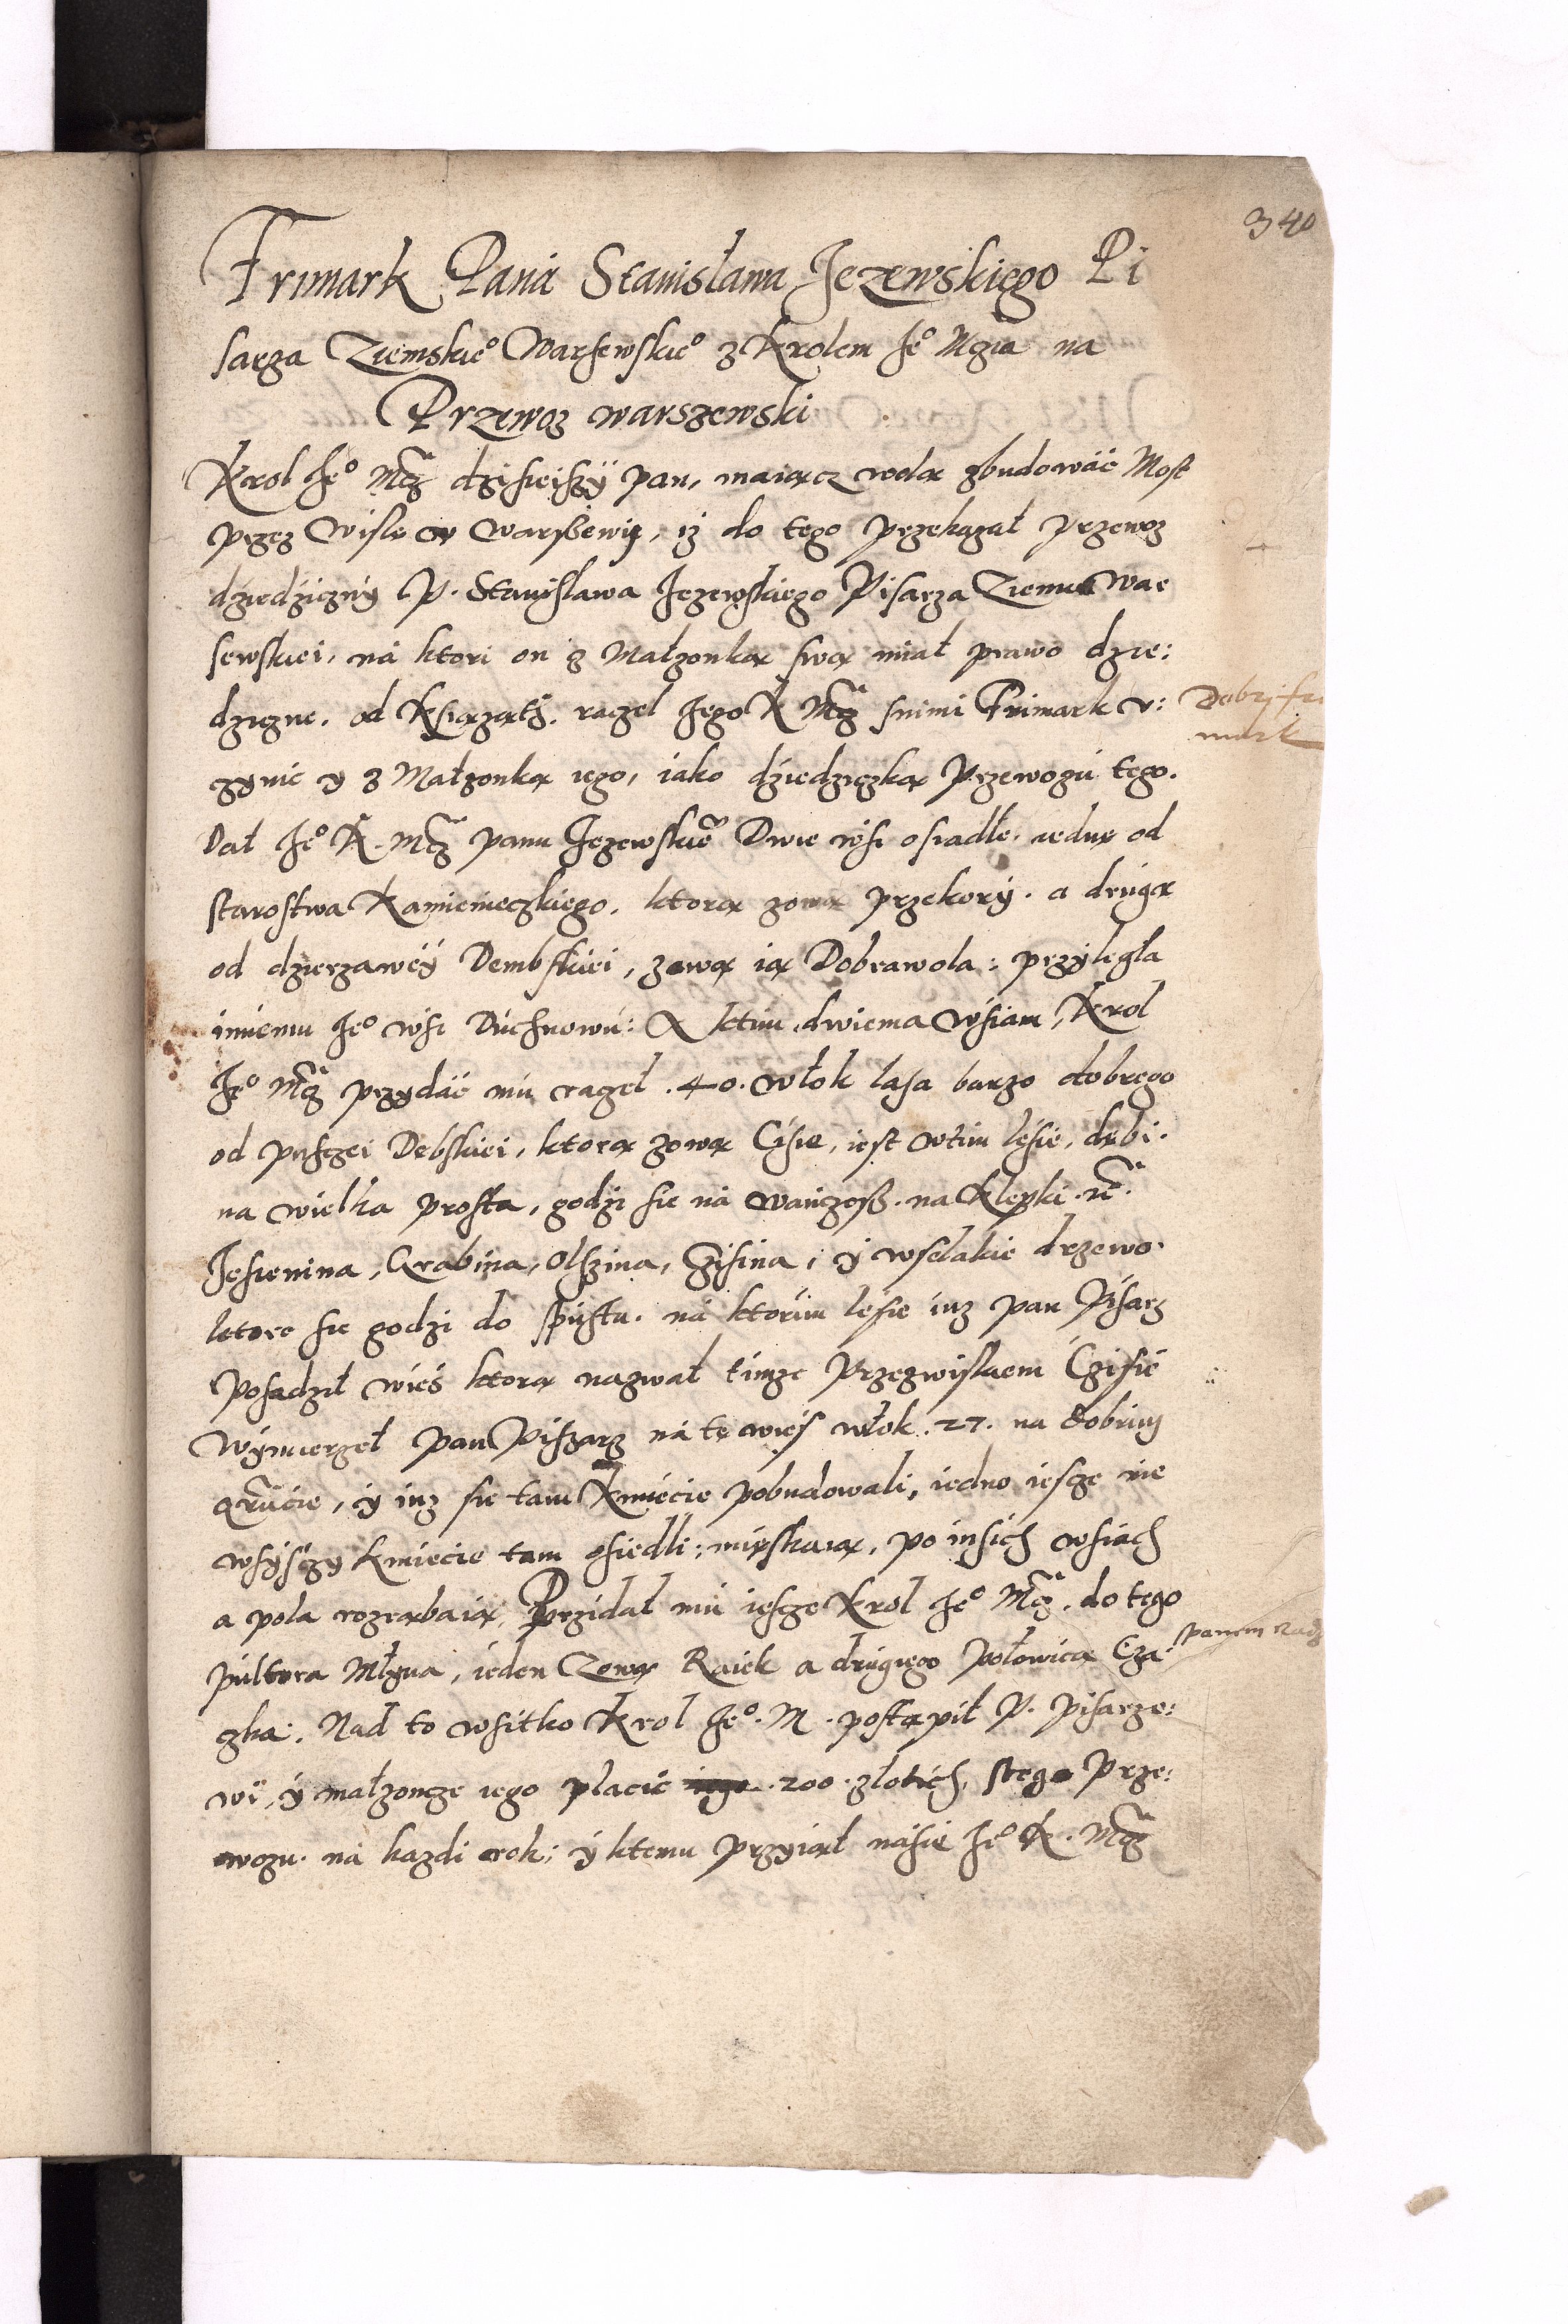 340
Frimark Pana Stanisława Jezewskiego Pi
sarza Ziemskieº Warsewskieº z Krolem Jeº Mczia na
Przewoz warszewski
Krol Jeº Mcz dzisieiszÿ pan, maiącz wolą zbudowáć Most
przez Wisłę w Warssewie, iż do tego przekazał przewoz
dziedziczny P. Stanisława Jezewskiego Pisarza Ziemie War
sewskiei, ná ktori on z Małzonką swą miał prawo dzie:
dziczne, od Ksiąząth, raczeł Jego K Mcz snimi Frimark v:
czynic y z Małzonką iego, iako dziedziczką Przewozu tego.
Dał Jeº K. Mcz panu Jezewskiē Dwie wsi osiadłe, iednę od
starostwa Kamienieczkiego, ktorą zową przekory. a drugą
od dzierzawÿ Dembskiei, zową ią Dobrawola: przyległa
inniemu Jeº wsi Duchnowu: A ktim dwiema wsiam, Krol
Jeº Mcz przydáć mu raczeł .40. włok lasa barzo dobrego
od pusczei Debskiei, ktorą zową Cisie, iest wtim lesie, dębi.
na wielka prosta, godzi się ná wańczoss, na Klepki. ec̃.
Jesienina, Grabina, Olszina, Czisina, y wselakie drzewo.
ktore się godzi do spustu. ná ktorim lesie iuz pan Pisarz
Posadzeł wieś ktorą nazwał timze Przezwiskiem Czisie
Wymierzeł pan Piszarz ná tę wieś włok .27. na dobrim
grũcie, y iuz się tam Kmiecie pobudowali, iedno iescze nie
wsÿsczy kmiecie tam osiedli: mieskaią, po insich wsiach
a pola rozrąbaią, Przidał mu iescze Krol Jeº Mcz. do tego
pultora Młyna, ieden Zową Raiek a drugiego połowicą Cza:
zka. Nad to wsitko Krol Jeº. M. postąpił P. Pisarzo:
wi, y małzoncze iego płacić .200. złotich, stego Prze:
wozu. ná kazdi rok: y ktemu przyiął násię Jeº K. Mcz
Dobrj fri
mark
panem